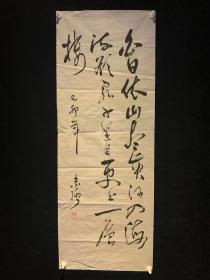 白日依山盡黄河入海
流欲窮千里目更上一層
楼 己卯年